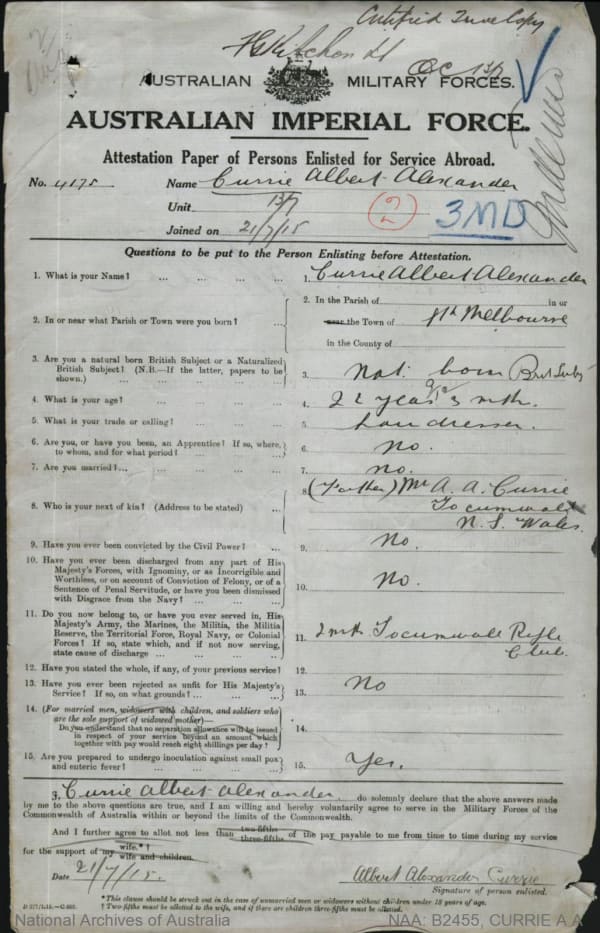 Certified True Copy
AUSTRALIAN MILITARY FORCES.
OC 13/7
AUSTRALIAN IMPERIAL FORCE.
Attestation Paper of Persons Enlisted for Service Abroad.
No. 4175 Name Currie Albert Alexander
Unit 13/7
Joined on 21/7/15
2
3MD
Questions to be put to the Person Enlisting before Attestation.
1. What is your Name? ... 1. Currie Albert Alexander
2. In or near what Parish or Town were you born? ... 2. In the Parish of in or
near the Town of Nth Melbourne
in the County of
3. Are you a natural born British Subject or a Naturalized
British Subject? (N.B.—If the latter, papers to be
shown.) ... 3. Nat. born Brit Subj
4. What is your age? ... 4. 22 years 3 mth.
5. What is your trade or calling? ... 5.
6. Are you, or have you been, an Apprentice? If so, where,
to whom, and for what period? ... 6. No.
7. Are you married? ... 7. no.
8. Who is your next of kin? (Address to be stated) ... 8. (Father) Mr A. A. Currie
Tocumwal
N. S. Wales.
9. Have you ever been convicted by the Civil Power? ... 9. No.
10. Have you ever been discharged from any part of His
Majesty's Forces, with Ignominy, or as Incorrigible and
Worthless, or on account of Conviction of Felony, or of a
Sentence of Penal Servitude, or have you been dismissed
with Disgrace from the Navy? ... 10. No.
11. Do you now belong to, or have you ever served in, His
Majesty's Army, the Marines, the Militia, the Militia
Reserve, the Territorial Force, Royal Navy, or Colonial
Forces? If so, state which, and if not now serving,
state cause of discharge ... 11. 2 mth Tocumwall Rifle
Club.
12. Have you stated the whole, if any, of your previous service? 12.
13. Have you ever been rejected as unfit for His Majesty's
Service? If so, on what grounds? ... 13. No
14. (For married men, widowers with children, and soldiers who
are the sole support of widowed mother)—
Do you understand that no separation allowance will be issued
in respect of your service beyond an amount which
together with pay would reach eight shillings per day? 14.
15. Are you prepared to undergo inoculation against small pox
and enteric fever? ... 15. Yes.
I, Currie Albert Alexander do solemnly declare that the above answers made
by me to the above questions are true, and I am willing and hereby voluntarily agree to serve in the Military Forces of the
Commonwealth of Australia within or beyond the limits of the Commonwealth.
And I further agree to allot not less than two-fifths three-fifths of the pay payable to me from time to time during my service
for the support of my wife.*†
wife and children.
Date 21/7/15. Albert Alexander Currie
Signature of person enlisted.
* This clause should be struck out in the case of unmarried men or widowers without children under 18 years of age.
† Two-fifths must be allotted to the wife, and if there are children three-fifths must be allotted.
National Archives of Australia NAA: B2455, CURRIE A A